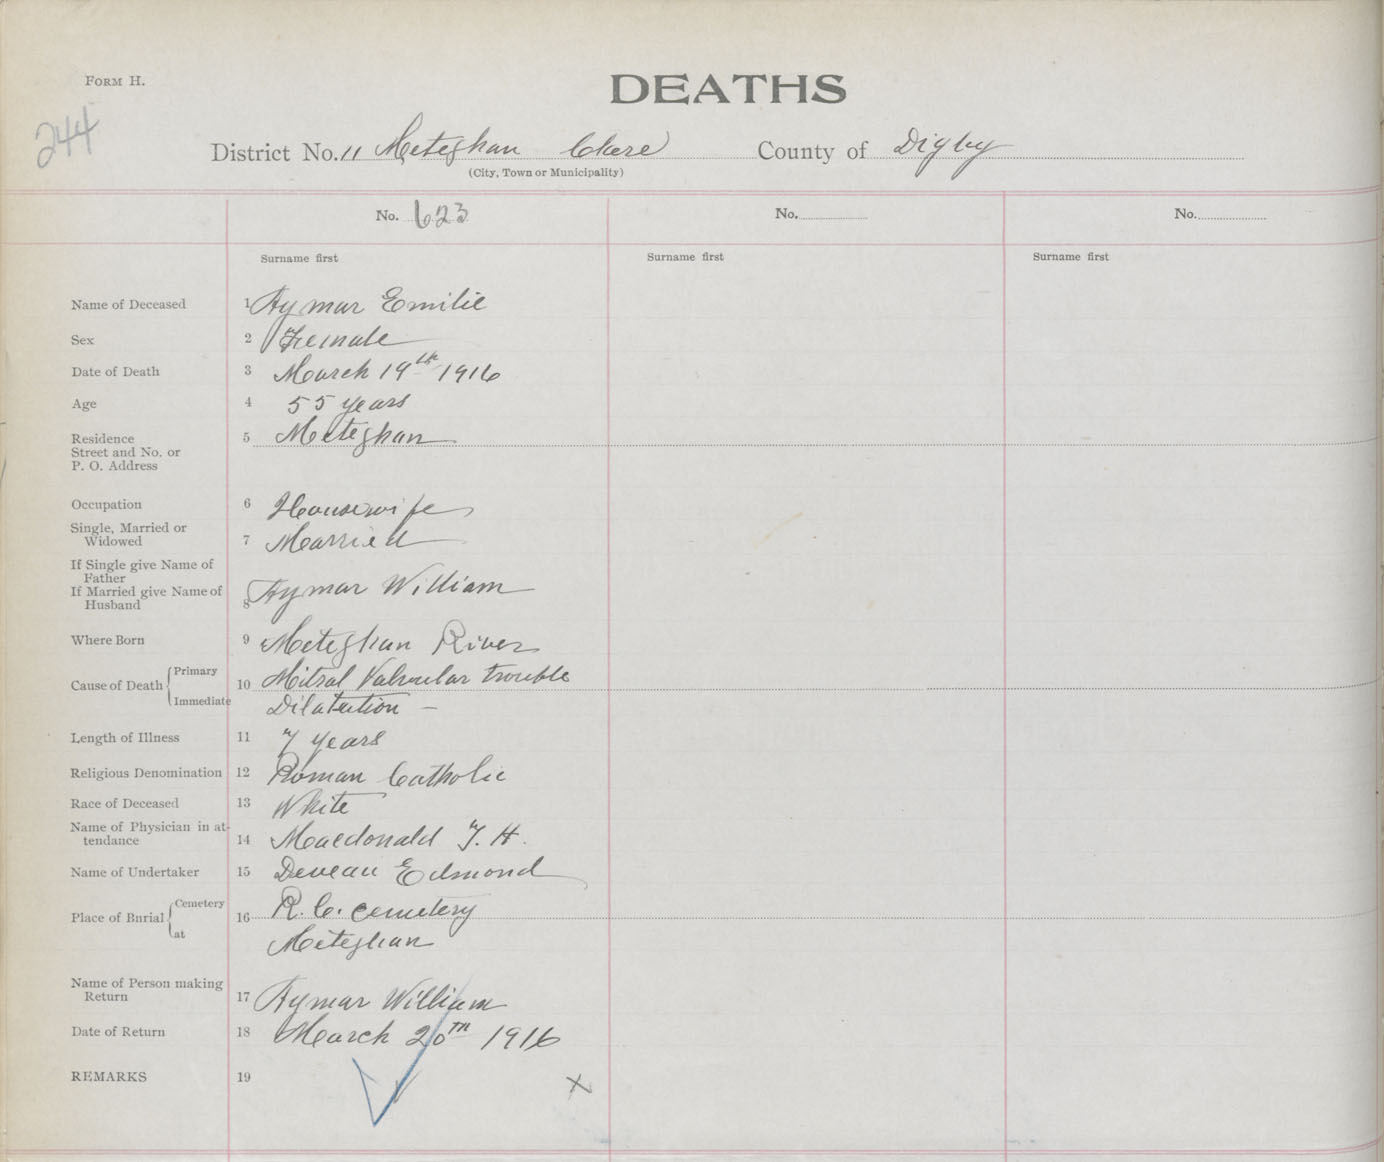 FORM H.
DEATHS
244
District No. 11 Meteghan Clare County of Digby
(City, Town or Municipality)
No. 623 No. No.
Surname first Surname first Surname first
Name of Deceased 1 Aymar Emilie
Sex 2 Female
Date of Death 3 March 19th 1916
Age 4 55 years
Residence 5 Meteghan
Street and No. or
P. O. Address
Occupation 6 Housewife
Single, Married or
Widowed 7 Married
If Single give Name of
Father
If Married give Name of
Husband 8 Aymar William
Where Born 9 Meteghan River
Cause of Death Primary 10 Mitral Valvular trouble
Immediate Dilatation –
Length of Illness 11 7 years
Religious Denomination 12 Roman Catholic
Race of Deceased 13 White
Name of Physician in at-
tendance 14 Macdonald T. H.
Name of Undertaker 15 Deveau Edmond
Place of Burial Cemetery 16 R. C. cemetery
at Meteghan
Name of Person making
Return 17 Aymar William
Date of Return 18 March 20TH 1916
REMARKS 19 X